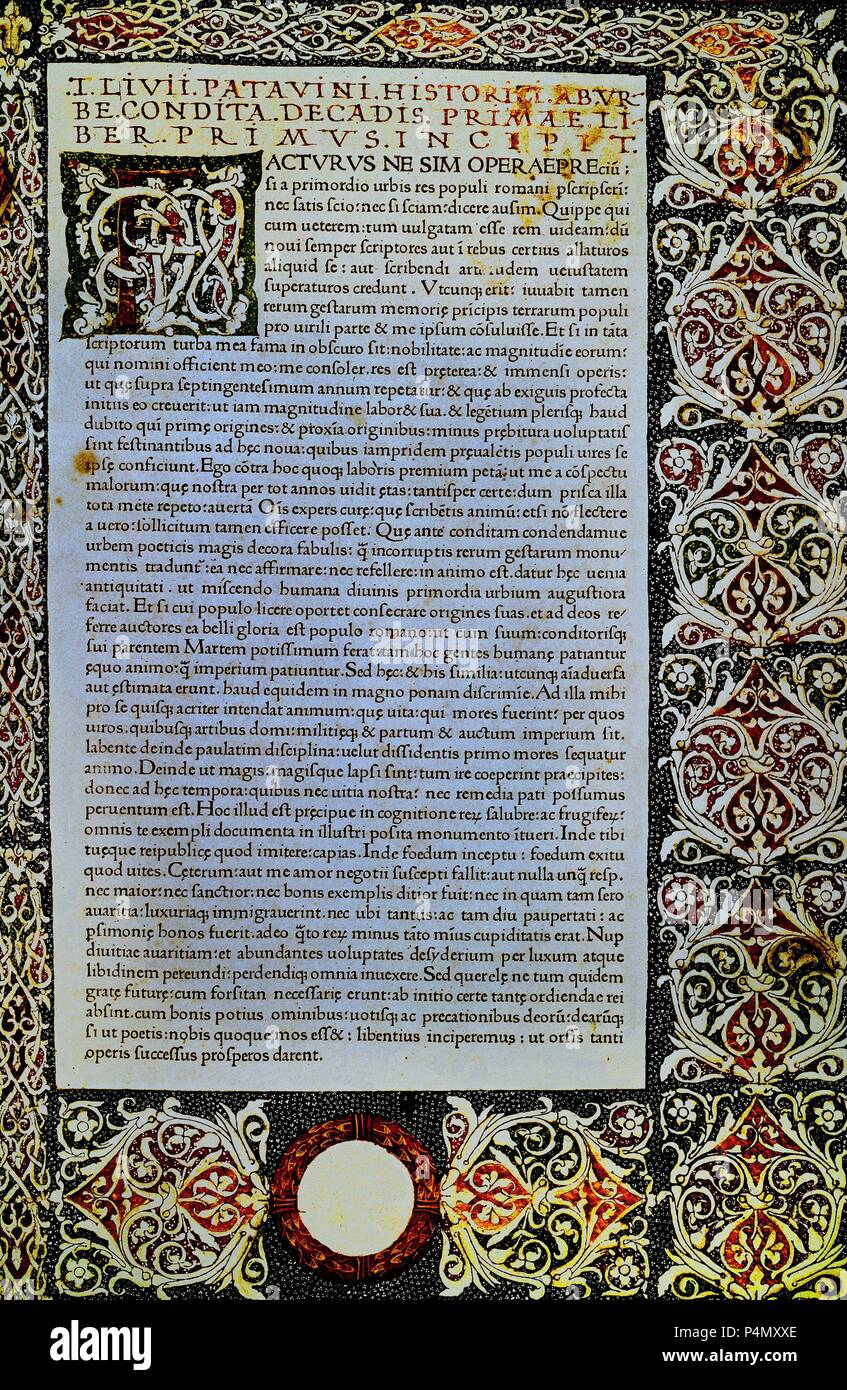 .T.LIVII.PATAVINI.HISTORICI.AB VR-
BE.CONDITA.DECADIS.PRIMAE LI-
BER.PRIMVS.INCIPIT.
FACTVRVS NE SIM OPERAEPREciū;
si a primordio urbis res populi romani pscripserī:
nec satis scio: nec si sciam: dicere ausim. Quippe qui
cum ueterem: tum uulgatam esse rem uideam: dū
noui semper scriptores aut ī rebus certius allaturos
aliquid se: aut scribendi uetustatem
superaturos credunt. Vtcunq; erit: iuuabit tamen
rerum gestarum memorię prīcipis terrarum populi
pro uirili parte & me ipsum cōsuluisse. Et si in tāta
scriptorum turba mea fama in obscuro sit: nobilitate: ac magnitudīe eorum:
qui nomini officient meo: me consoler. res est pręterea: & immensi operis:
ut quę supra septingentesimum annum repetatur: & quę ab exiguis profecta
initiis eo creuerit: ut iam magnitudine labor& sua. & legētium plerisq; haud
dubito quī primę origines: & ptoxīa originibus: minus prębitura uoluptatis
sint festinantibus ad hęc noua: quibus iampridem pręualētis populi uires se
ipsę conficiunt. Ego cōtra hoc quoq; laboris premium petā: ut me a cōspectu
malorum: quę nostra per tot annos uidit ętas: tantisper certe: dum prisca illa
tota mēte repeto: auertā Oīs expers curę: quę scribētis animū: etsi nō flectere
a uero: sollicitum tamen efficere posset. Quę ante conditam condendamue
urbem poeticis magis decora fabulis: q̄ incorruptis rerum gestarum monu-
mentis tradunt: ea nec affirmare: nec refellere: in animo est. datur hęc uenia
antiquitati. ut miscendo humana diuinis primordia urbium augustiora
faciat. Et si cui populo licere oportet consecrare origines suas. et ad deos re-
ferre auctores ea belli gloria est populo romano: ut cum suum: conditorisq;
sui parentem Martem potissimum ferat: tam hoc gentes humanę patiantur
ęquo animo: q̄ imperium patiuntur. Sed hęc: & his similia: utcunq; aīaduersa
aut ęstimata erunt. haud equidem in magno ponam discrimīe. Ad illa mihi
pro se quisq; acriter intendat animum: quę uita: qui mores fuerint: per quos
uiros. quibusq; artibus domi: militięq; & partum & auctum imperium sit.
labente deinde paulatim disciplina: uelut dissidentis primo mores sequatur
animo. Deinde ut magis: magisque lapsi sint: tum ire coeperint pręcipites:
donec ad hęc tempora: quibus nec uitia nostra: nec remedia pati possumus
peruentum est. Hoc illud est pręcipue in cognitione reꝝ salubre: ac frugifeꝝ:
omnis te exempli documenta in illustri posita monumento ītueri. Inde tibi
tuęque reipublicę quod imitere: capias. Inde foedum inceptu: foedum exitu
quod uites. Cęterum: aut me amor negotii suscepti fallit: aut nulla unq̄ resp.
nec maior: nec sanctior: nec bonis exemplis ditior fuit: nec in quam tam sero
auaritia: luxuriaq; immigrauerint. nec ubi tantus: ac tam diu paupertati: ac
psimonię honos fuerit. adeo q̄to reꝝ minus tāto mīus cupiditatis erat. Nup
diuitiae auaritiam: et abundantes uoluptates desyderium per luxum atque
libidinem pereundi: perdendiq; omnia inuexere. Sed querelę ne tum quidem
gratę futurę: cum forsitan necessarię erunt: ab initio certe tantę ordiendae rei
absint. cum bonis potius ominibus: uotisq; ac precationibus deorū: dearūq;
si ut poetis: nobis quoque mos ess&: libentius inciperemus: ut orsis tanti
operis successus prosperos darent.
alamy
alamy
alamy
Image ID: P4MXXE
www.alamy.com